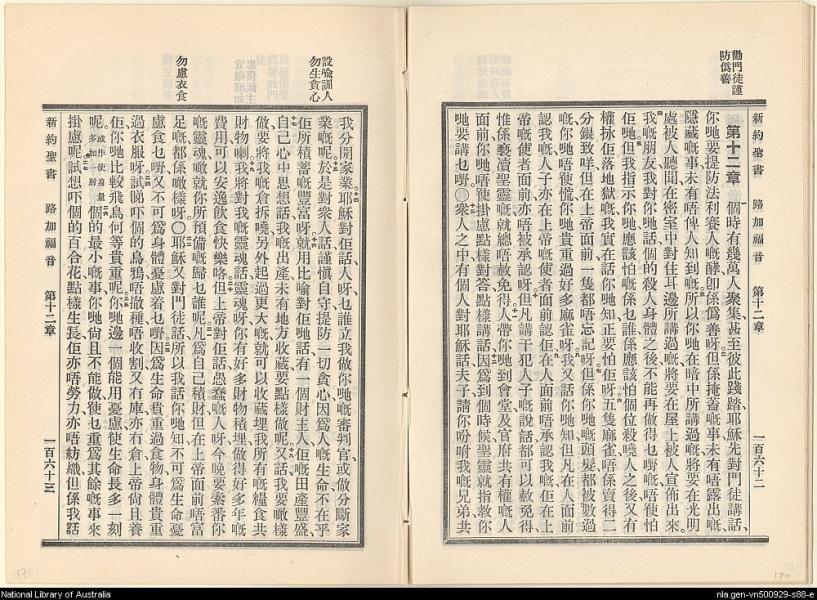 勸門徒謹
防僞善
新約聖書 路加福音 第十二章 一百六十二
第十二章 個時有幾萬人聚集甚至彼此踐踏耶穌先對門徒講話、
你哋要提防法利賽人嘅酵卽係僞善呀但係掩蓋嘅事未有唔露出嘅、
隱藏嘅事未有唔俾人知到嘅所以你哋在暗中所講過嘅將要在光明
處被人聽聞在密室中對住耳邊所講過嘅將要在屋上被人宣佈出來、
我嘅朋友我對你哋話個的殺人身體之後不能再做得乜嘢嘅唔使怕
佢哋但我指示你哋應該怕嘅係乜誰係應該怕個位殺嘵人之後又有
權掁佢落地獄嘅我實在話你哋知正要怕佢呀五隻麻雀唔係賣得二
分銀致咩但在上帝面前一隻都唔忘記呀但係你哋嘅頭髮都被數過
嘅你哋唔使慌你哋貴重過好多麻雀呀我又話你哋知但凡在人面前
認我嘅人子亦在上帝嘅使者面前認佢在人面前唔承認我嘅佢在上
帝嘅使者面前亦唔被承認呀但凡講干犯人子嘅說話都可以赦免得
惟係褻瀆聖靈嘅就總唔赦免得人帶你哋到會堂及官府共有權嘅人
面前你哋唔使掛慮點樣對答點樣講話因爲到個時候聖靈就指教你
哋要講乜嘢〇衆人之中有個人對耶穌話夫子請你吩咐我嘅兄弟共
設喻訓人
勿生貪心
勿慮衣食
我分開家業耶穌對佢話人呀乜誰立我做你哋嘅審判官或做分斷家
業嘅呢於是對衆人話謹愼自守提防一切貪心因爲人嘅生命不在乎
佢所積蓄嘅豐富呀就用比喻對佢哋話有一個財主人佢嘅田產豐盛、
自己心中思想話我嘅出產未有地方收藏要點樣做呢又話我要噉樣
做要將我嘅倉拆嘵另外起過更大嘅就可以收藏埋我所有嘅糧食共
財物喇我將對我嘅靈魂話靈魂呀你有好多財物積埋做得好多年嘅
費用可以安逸飲食快樂咯但上帝對佢話愚蠢嘅人呀今晚要索番你
嘅靈魂噉就你所預備嘅歸乜誰呢凡爲自己積財但在上帝面前唔富
足嘅都係噉樣呀〇耶穌又對門徒話所以我話你哋知不可爲生命憂
慮食乜嘢又不可爲身體憂慮着乜嘢因爲生命貴重過食物身體貴重
過衣服呀試睇吓個的烏鴉唔撒種唔收割又冇庫亦冇倉上帝尙且養
佢你哋比較飛鳥何等貴重呢你哋邊一個能用憂慮使生命長多一刻
呢或作使身量多加一肘個的最小嘅事你哋尙且不能做使乜重爲其餘嘅事來
掛慮呢試想吓個的百合花點樣生長佢亦唔勞力亦唔紡織但係我話
新約聖書 路加福音 第十二章 一百六十三
National Library of Australia
nla.gen-vn500929-s88-e